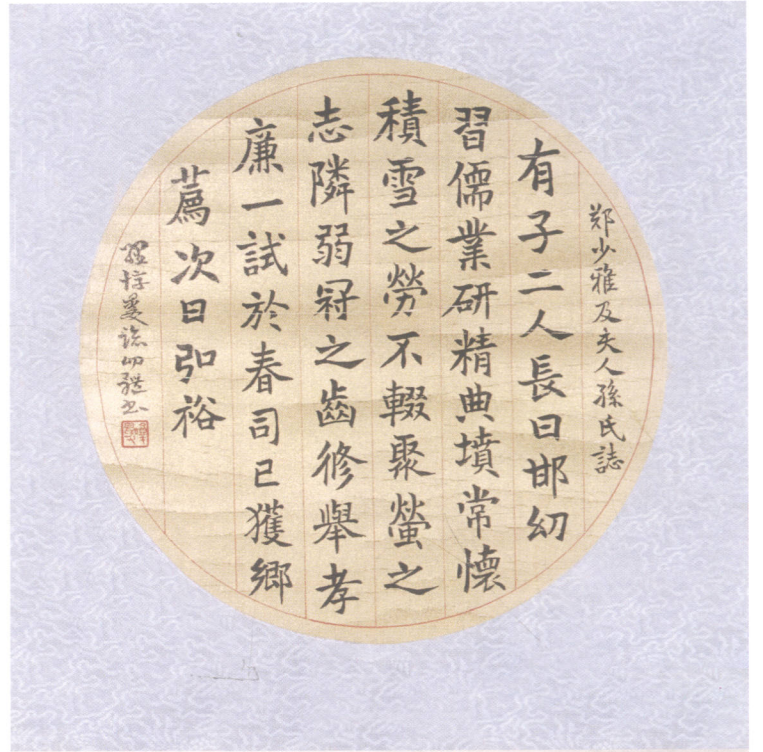 郑少雅及夫人孫氏誌
有子二人長曰邯幼
習儒業研精典墳常懷
積雪之勞不輟聚螢之
志隣弱冠之齒修舉孝
廉一試於春司已獲鄉
薦次曰弘裕